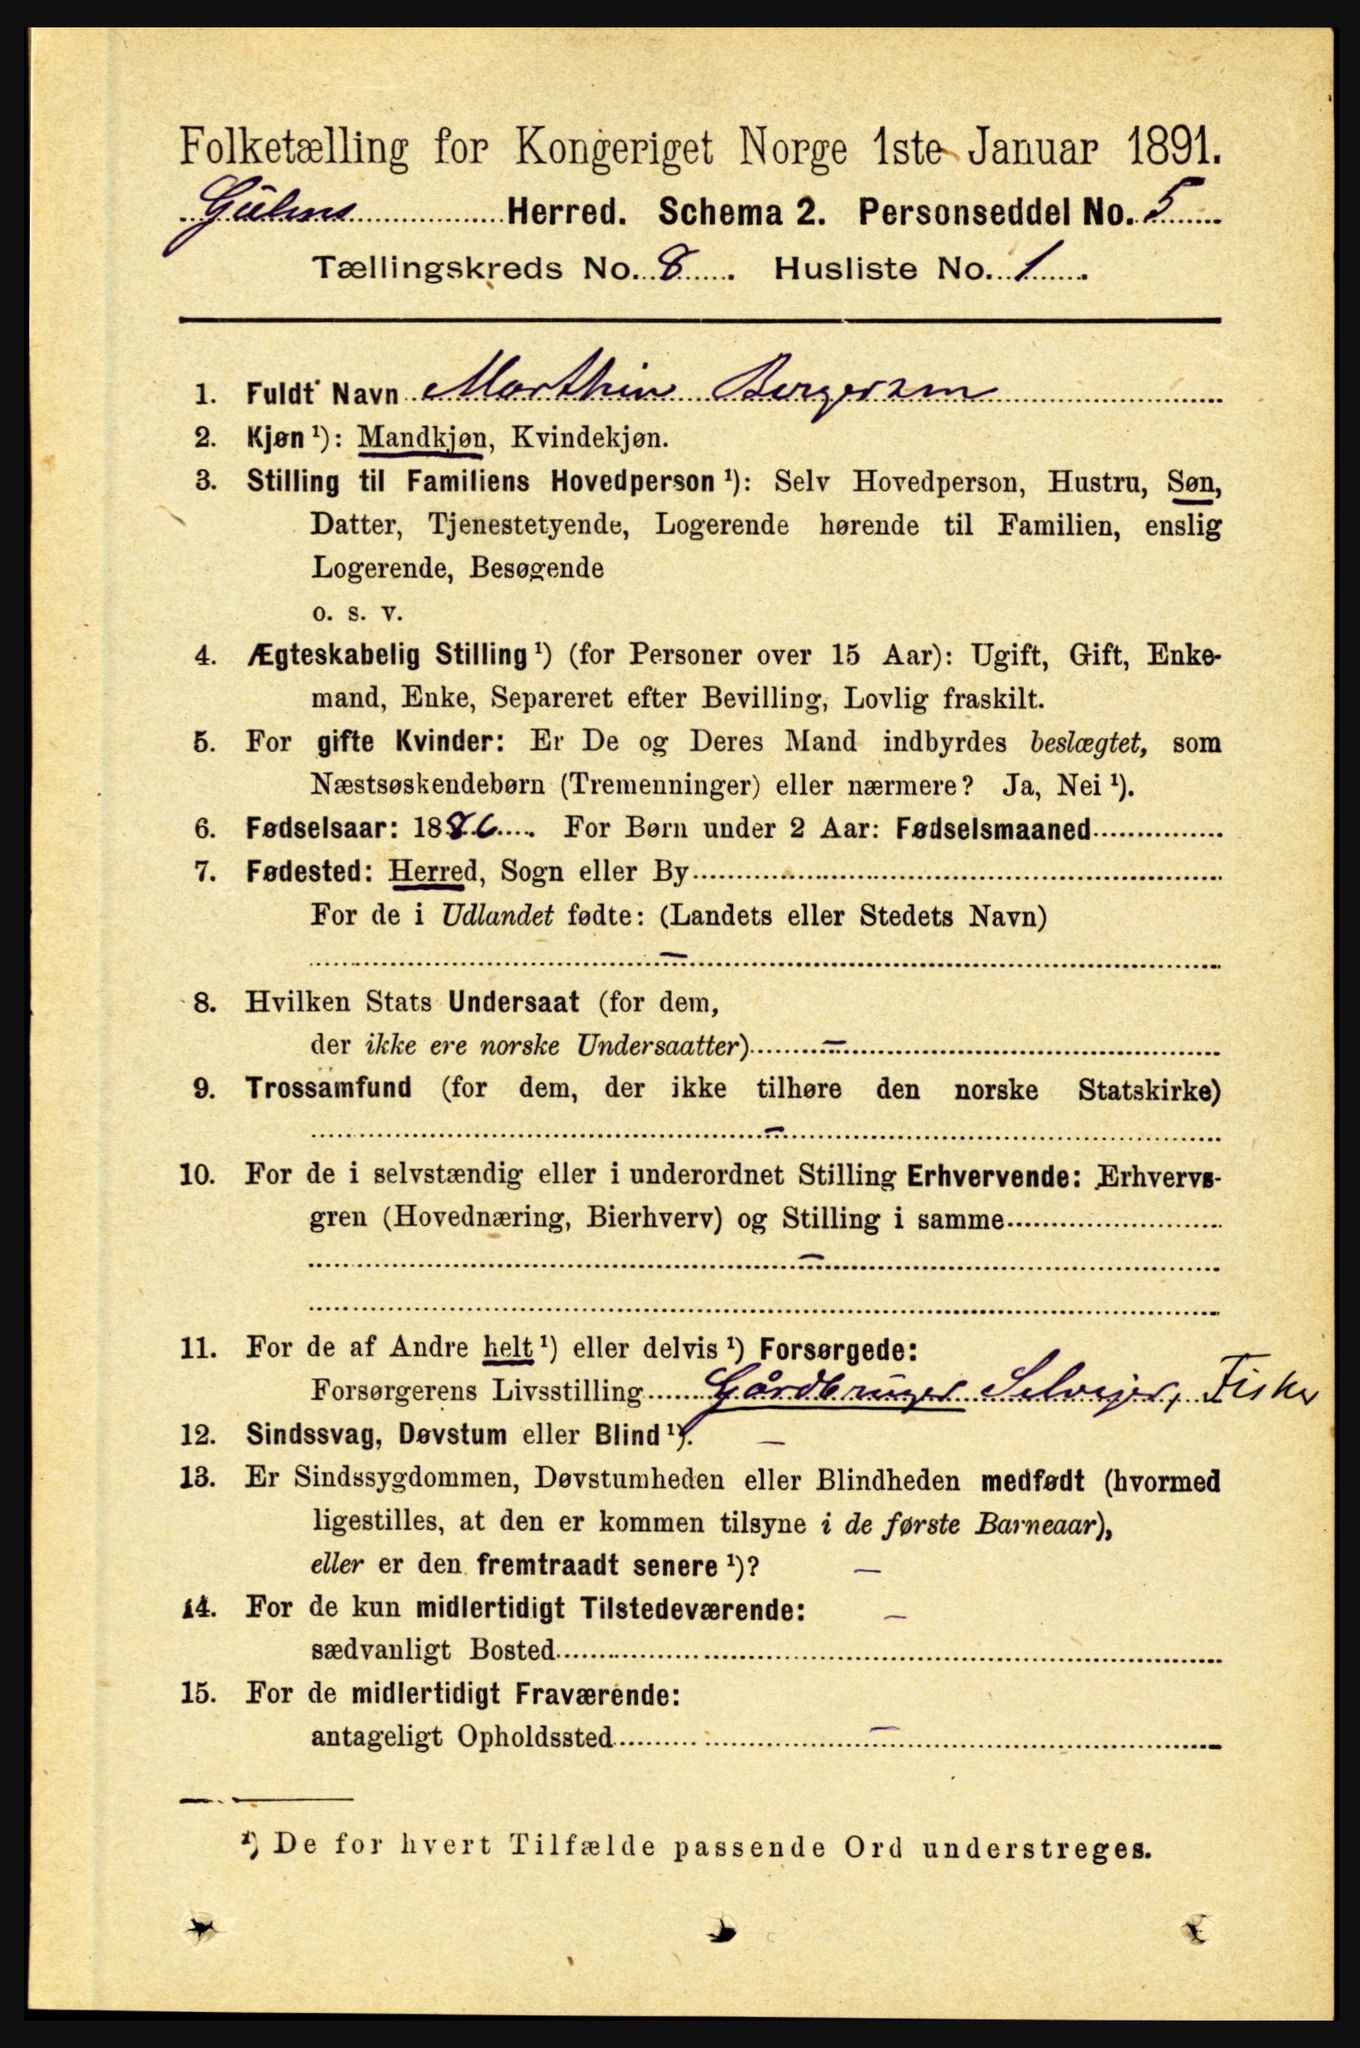 Folketælling for Kongeriget Norge 1ste Januar 1891.
Gulens Herred. Schema 2. Personseddel No. 5
Tællingskreds No. 8. Husliste No. 1.
1. Fuldt Navn Marthin Bergersen
2. Kjøn ¹): Mandkjøn, Kvindekjøn.
3. Stilling til Familiens Hovedperson ¹): Selv Hovedperson, Hustru, Søn,
Datter, Tjenestetyende, Logerende hørende til Familien, enslig
Logerende, Besøgende
o. s. v.
4. Ægteskabelig Stilling ¹) (for Personer over 15 Aar): Ugift, Gift, Enke-
mand, Enke, Separeret efter Bevilling, Lovlig fraskilt.
5. For gifte Kvinder: Er De og Deres Mand indbyrdes beslægtet, som
Næstsøskendebørn (Tremenninger) eller nærmere? Ja, Nei ¹).
6. Fødselsaar: 1886. For Børn under 2 Aar: Fødselsmaaned
7. Fødested: Herred, Sogn eller By
For de i Udlandet fødte: (Landets eller Stedets Navn)
—
8. Hvilken Stats Undersaat (for dem,
der ikke ere norske Undersaatter) —
9. Trossamfund (for dem, der ikke tilhøre den norske Statskirke)
—
10. For de i selvstændig eller i underordnet Stilling Erhvervende: Erhvervs-
gren (Hovednæring, Bierhverv) og Stilling i samme
—
11. For de af Andre helt ¹) eller delvis ¹) Forsørgede:
Forsørgerens Livsstilling Gårdbruger Selvejer, Fisker
12. Sindssvag, Døvstum eller Blind ¹). —
13. Er Sindssygdommen, Døvstumheden eller Blindheden medfødt (hvormed
ligestilles, at den er kommen tilsyne i de første Barneaar),
eller er den fremtraadt senere ¹)? —
14. For de kun midlertidigt Tilstedeværende: —
sædvanligt Bosted
15. For de midlertidigt Fraværende:
antageligt Opholdssted —
¹) De for hvert Tilfælde passende Ord understreges.